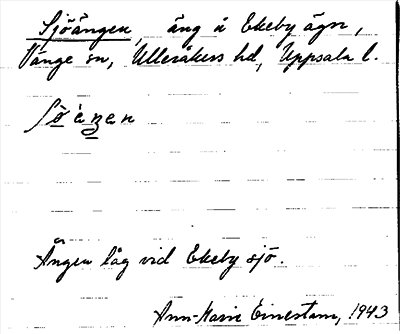 Sjöängen, äng å Ekeby ägor,
Vänge sn, Ulleråkers hd, Uppsala l.
Ängen låg vid Ekeby sjö.
Ann-Marie Einestam, 1943